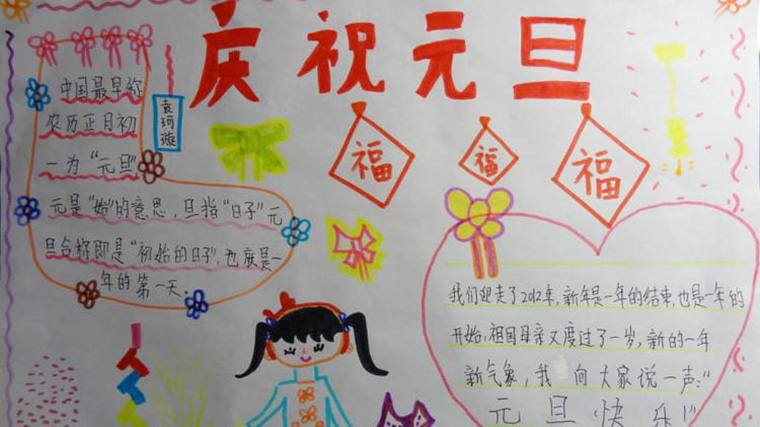 庆祝元旦
中国最早称
农历正月初
一为“元旦”
元是“始”的意思，旦指“日子”元
旦合称即是“初始的日子”，也度是一
年的第一天。
袁珂璇
福
福
福
我们迎走了2012年，新年是一年的结束，也是一年的
开始，祖国母亲又度过了一岁，新的一年
新气象，我 向大家说一声：“
元旦快乐！”